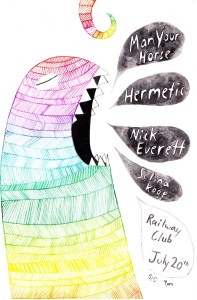 Man Your
Horse
Hermetic
Nick
Everett
Selina
Koop
Railway
Club
July 20th
9pm